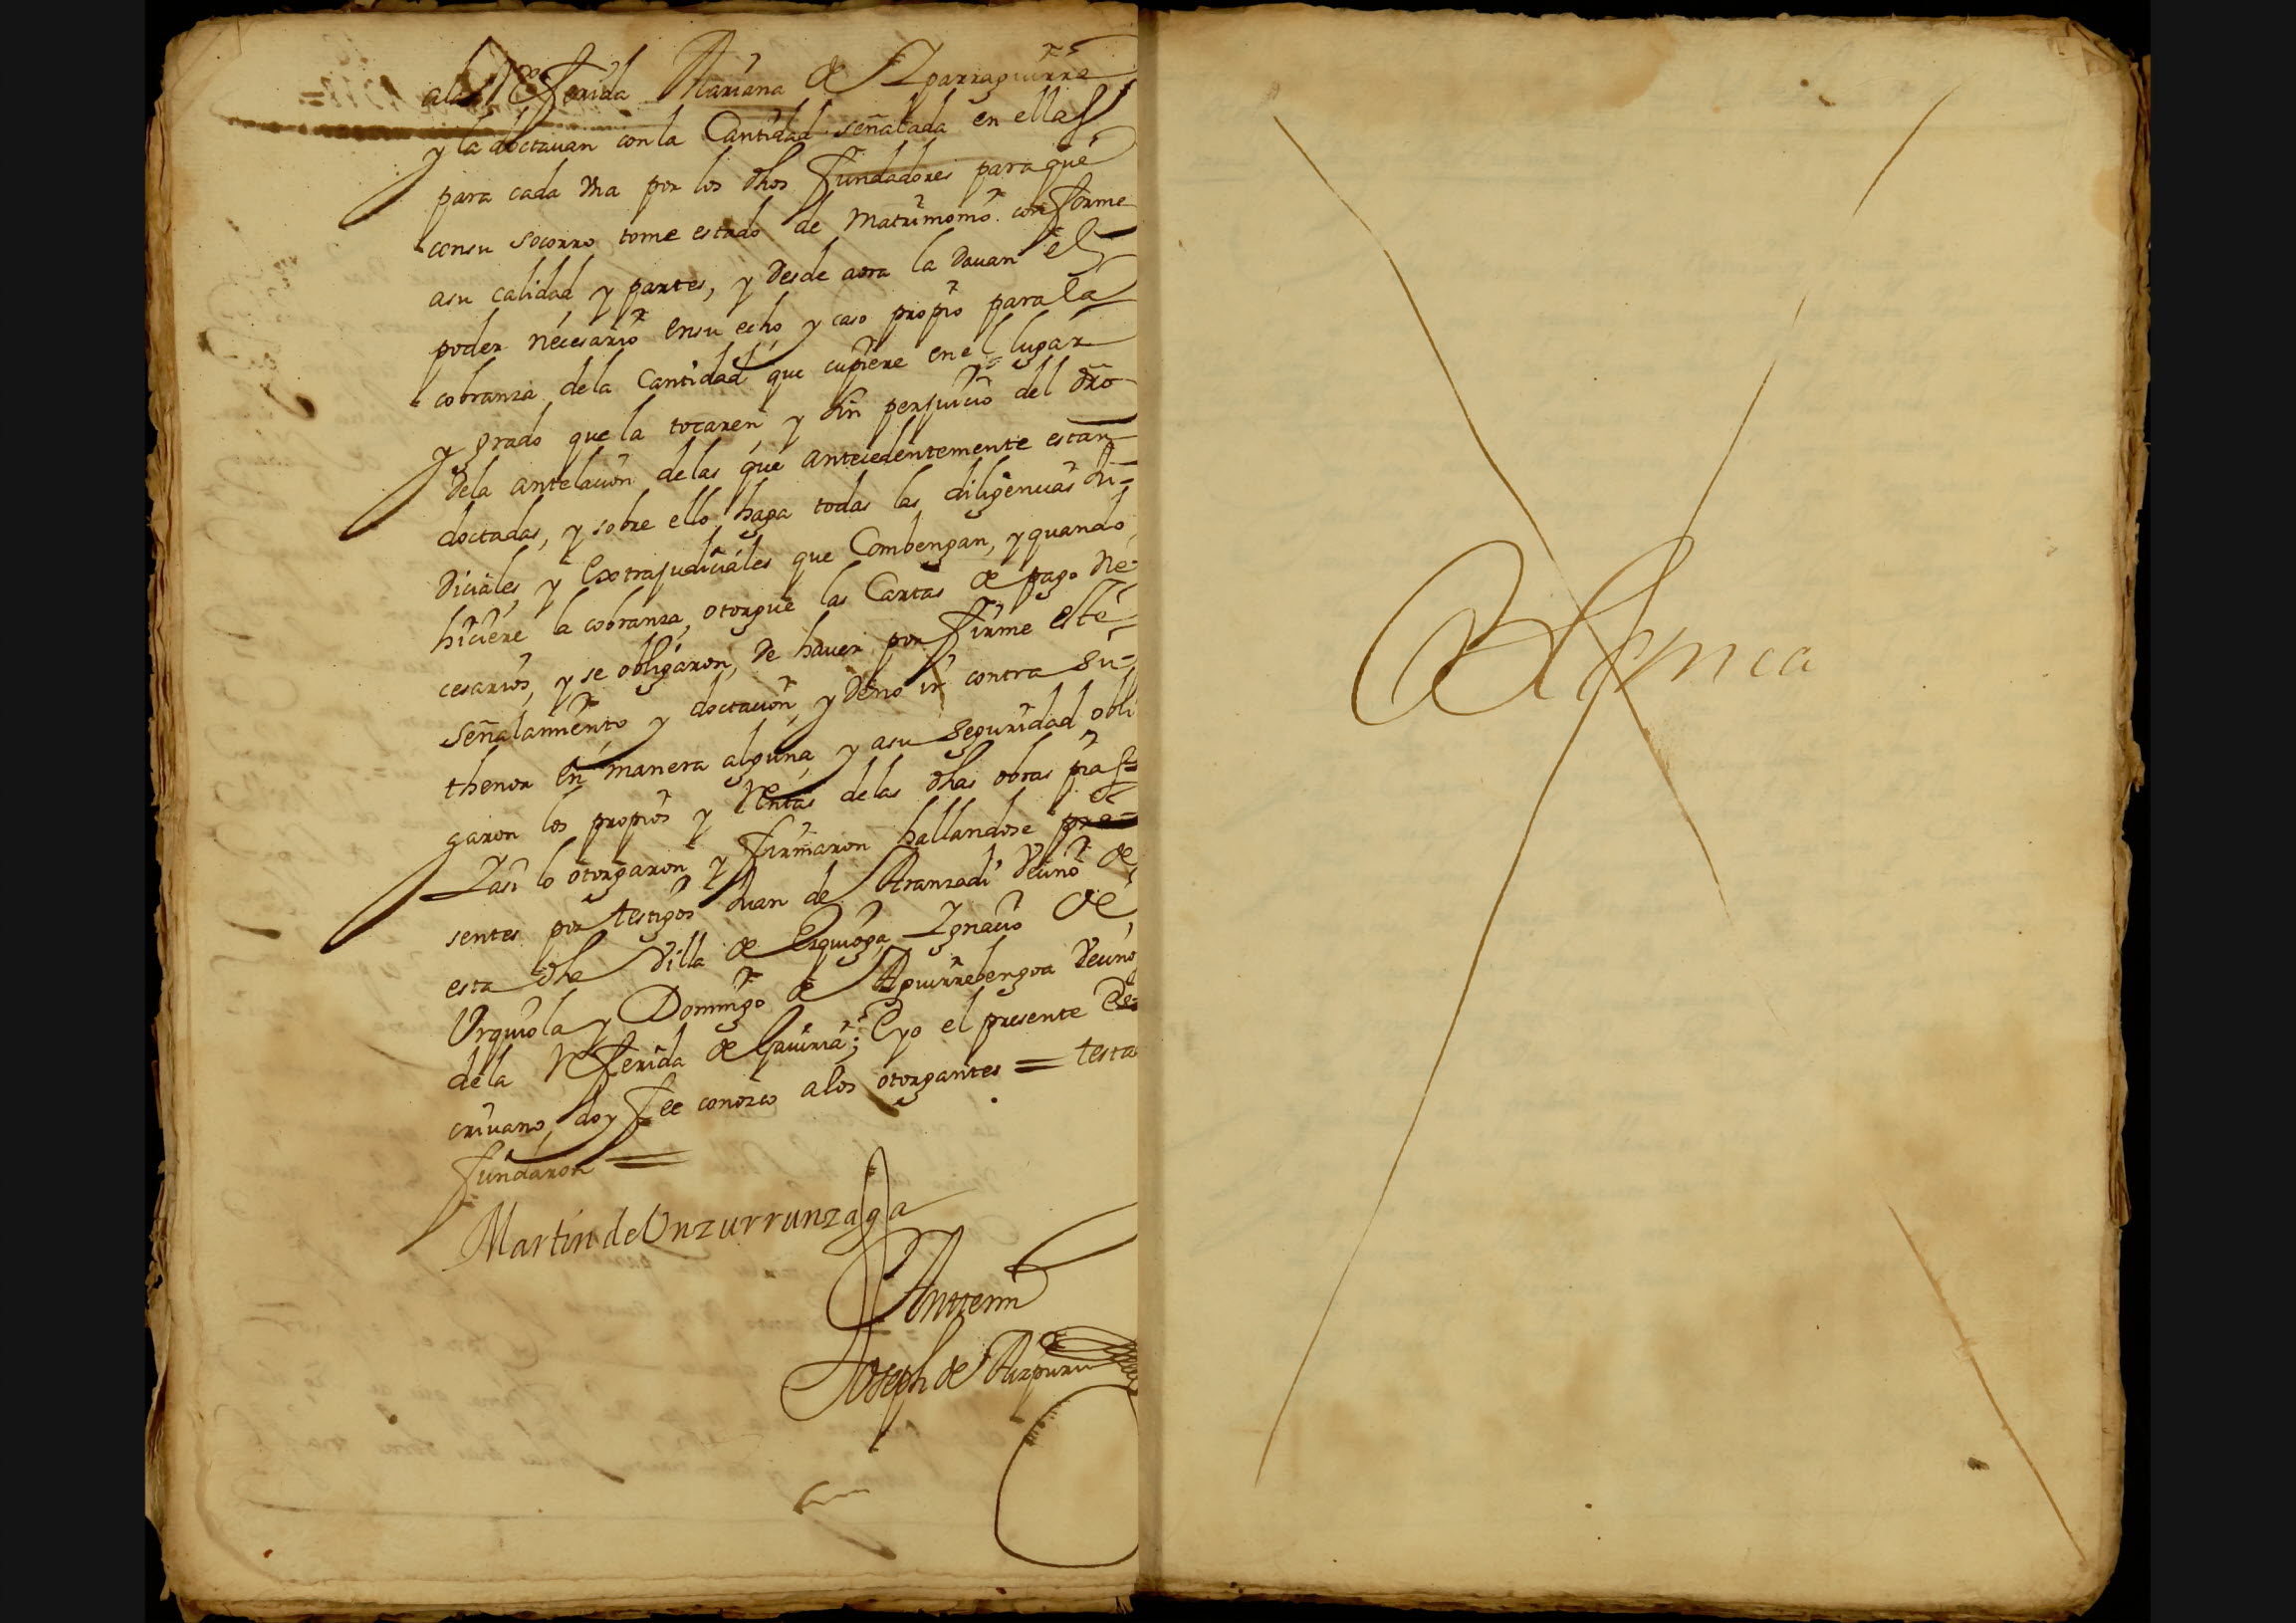 ala Referida Mariana de Yparraguirre
y la doctauan con la Cantidad señalada en ellas
para cada vna por los dhos fundadores para que
consu socorro tome estado de Matrimonio conforme
asu calidad y partes, y desde aora la dauan el
poder necesario ensu echo y caso propio para la
cobranza dela Cantidad que cupiere en el lugar
y grado que la tocaren y sin perjuicio del dro
dela antelacion delas que antecedentemente estan
doctadas, y sobre ello haga todas las diligencias Ju=
diciales y Extrajudiciales que Combengan, y quando
hiciere la cobranza, otorgue las Cartas de pago ne=
cesarios, y se obligaron, de hauer por firme este
señalamiento y doctacion, y deno ir contra su=
thenor en manera alguna, y asu seguridad obli
garon los propios y Rentas delas dhas obras pias
Yasi lo otorgaron y firmaron hallandose pre=
sentes por testigos Juan de Aranzadi vecino de
esta dha Villa de Ezquioga, Ygnacio de
Urquiola y Domingo de Aguirrebengoa vecino
dela Referida de Gauiria; E yo el presente Es=
criuano, doy fee conozco alos otorgantes = testa
fundaron =
Martin de Unzurrunzaga
Anttemi
Joseph de Aizpuru